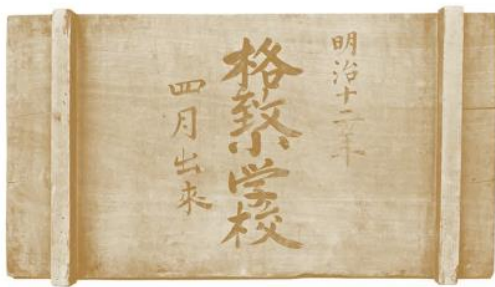 明治十二年
格致小学校
四月出来